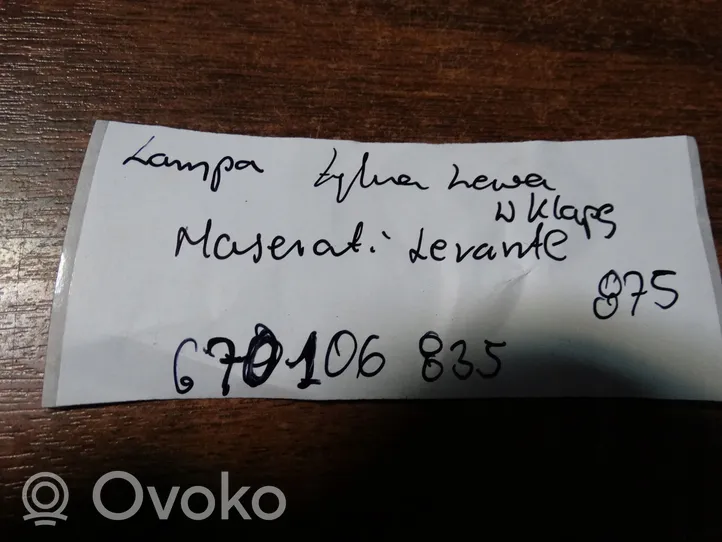 Lampa Tylna Lewa
w Klapę
Maserati Levante
875
670106 835
Ovoko